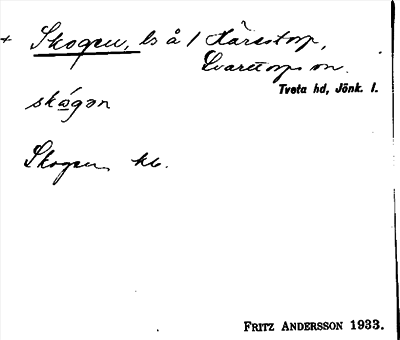 + Skogen, ls å 1 Kärrstorp,
Svarttorps sn.
Tveta hd, Jönk. l.
skógən
Skogen kb.
FRITZ ANDERSSON 1933.